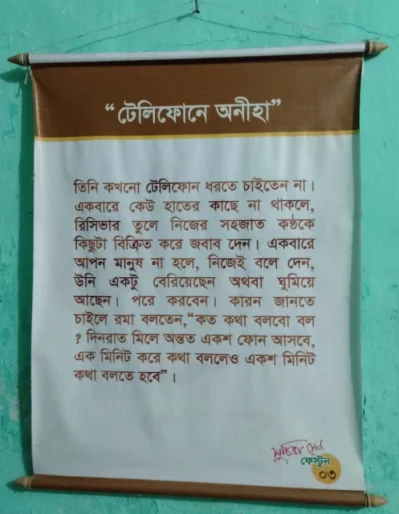 “টেলিফোনে অনীহা”
তিনি কখনো টেলিফোন ধরতে চাইতেন না।
একবারে কেউ হাতের কাছে না থাকলে,
রিসিভার তুলে নিজের সহজাত কন্ঠকে
কিছুটা বিক্রিত করে জবাব দেন। একবারে
আপন মানুষ না হলে, নিজেই বলে দেন,
উনি একটু বেরিয়েছেন অথবা ঘুমিয়ে
আছেন। পরে করবেন। কারন জানতে
চাইলে রমা বলতেন,“কত কথা বলবো বল
? দিনরাত মিলে অন্তত একশ ফোন আসবে,
এক মিনিট করে কথা বললেও একশ মিনিট
কথা বলতে হবে”।
সুচিত্রা সেন
ফেস্টুন
০৩